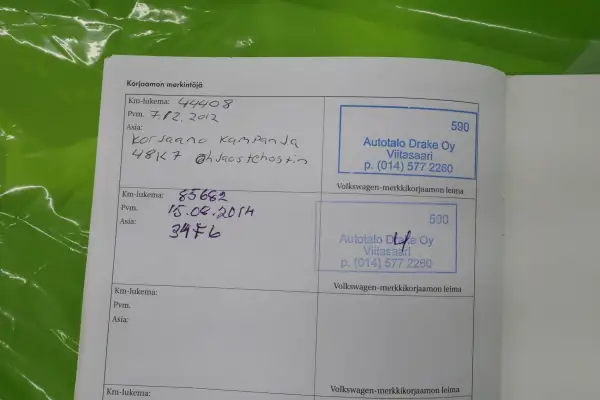 Korjaamon merkintöjä
Km-lukema: 44408
Pvm. 7.12.2012
Asia:
Korjaamo Kampanja
48K7 Ohjaostehostin
590
Autotalo Drake Oy
Viitasaari
p. (014) 577 2260
Volkswagen-merkkikorjaamon leima
Km-lukema: 85682
Pvm. 15.08.2014
Asia: 34F6
590
Autotalo Drake Oy
Viitasaari
p. (014) 577 2260
Volkswagen-merkkikorjaamon leima
Km-lukema:
Pvm.
Asia:
Volkswagen-merkkikorjaamon leima
Km-lukema: